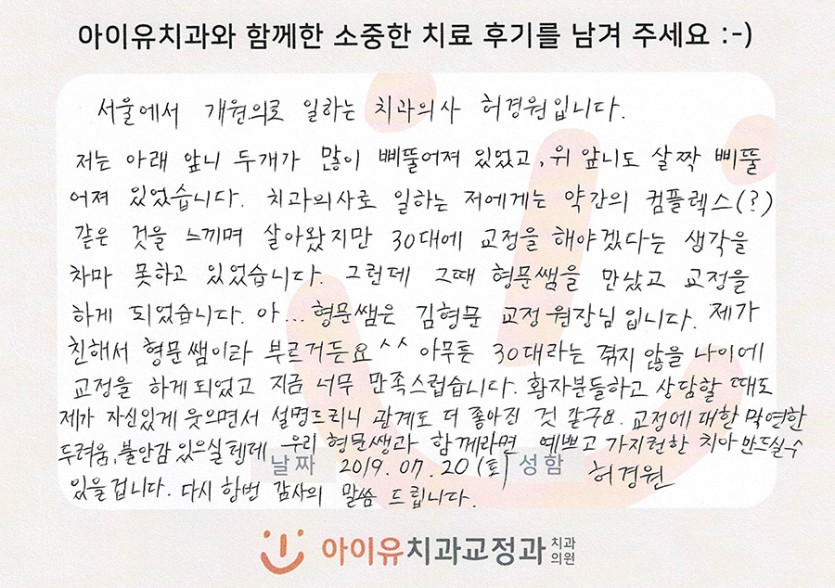 아이유치과와 함께한 소중한 치료 후기를 남겨 주세요 :-)
서울에서 개원의로 일하는 치과의사 허경원입니다.
저는 아래 앞니 두개가 많이 삐뚤어져 있었고, 위 앞니도 살짝 삐뚤
어져 있었습니다. 치과의사로 일하는 저에게는 약간의 컴플렉스(?)
같은 것을 느끼며 살아왔지만 30대에 교정을 해야겠다는 생각을
차마 못하고 있었습니다. 그런데 그때 형문쌤을 만났고 교정을
하게 되었습니다. 아... 형문쌤은 김형문 교정원장님 입니다. 제가
친해서 형문쌤이라 부르거든요^^ 아무튼 30대라는 젊지 않을 나이에
교정을 하게되었고 지금 너무 만족스럽습니다. 환자분들하고 상담할 때도
제가 자신있게 웃으면서 설명드리니 관계도 더 좋아진 것 같구요. 교정에 대한 막연한
두려움, 불안감 있으실텐데 우리 형문쌤과 함께라면 예쁘고 가지런한 치아 반드실수
날짜 2019. 07. 20 (토) 성함 허경원
있을겁니다. 다시 한번 감사의 말씀 드립니다.
아이유치과교정과 치과
의원